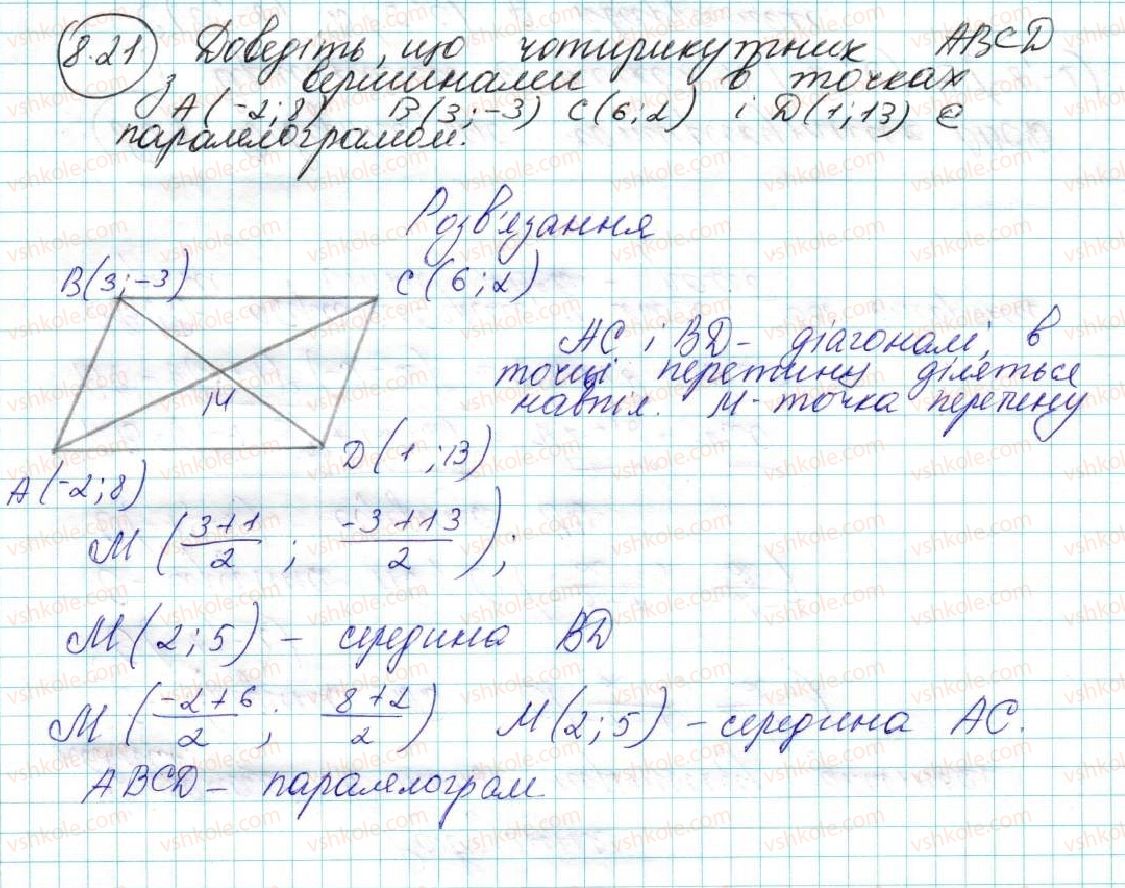 8.21 Доведіть, що чотирикутник ABCD
з вершинами в точках
A(-2;8) B(3;-3) C(6;2) і D(1;13) є
паралелограмом.
Розв'язання
B(3;-3) C(6;2)
AC і BD - діагоналі, в
точці перетину діляться
навпіл. M - точка перетину
M
A(-2;8) D(1;13)
M (3+1/2 ; -3+13/2);
M(2;5) - середина BD
M (-2+6/2 ; 8+2/2) M(2;5) - середина AC.
ABCD - паралелограм